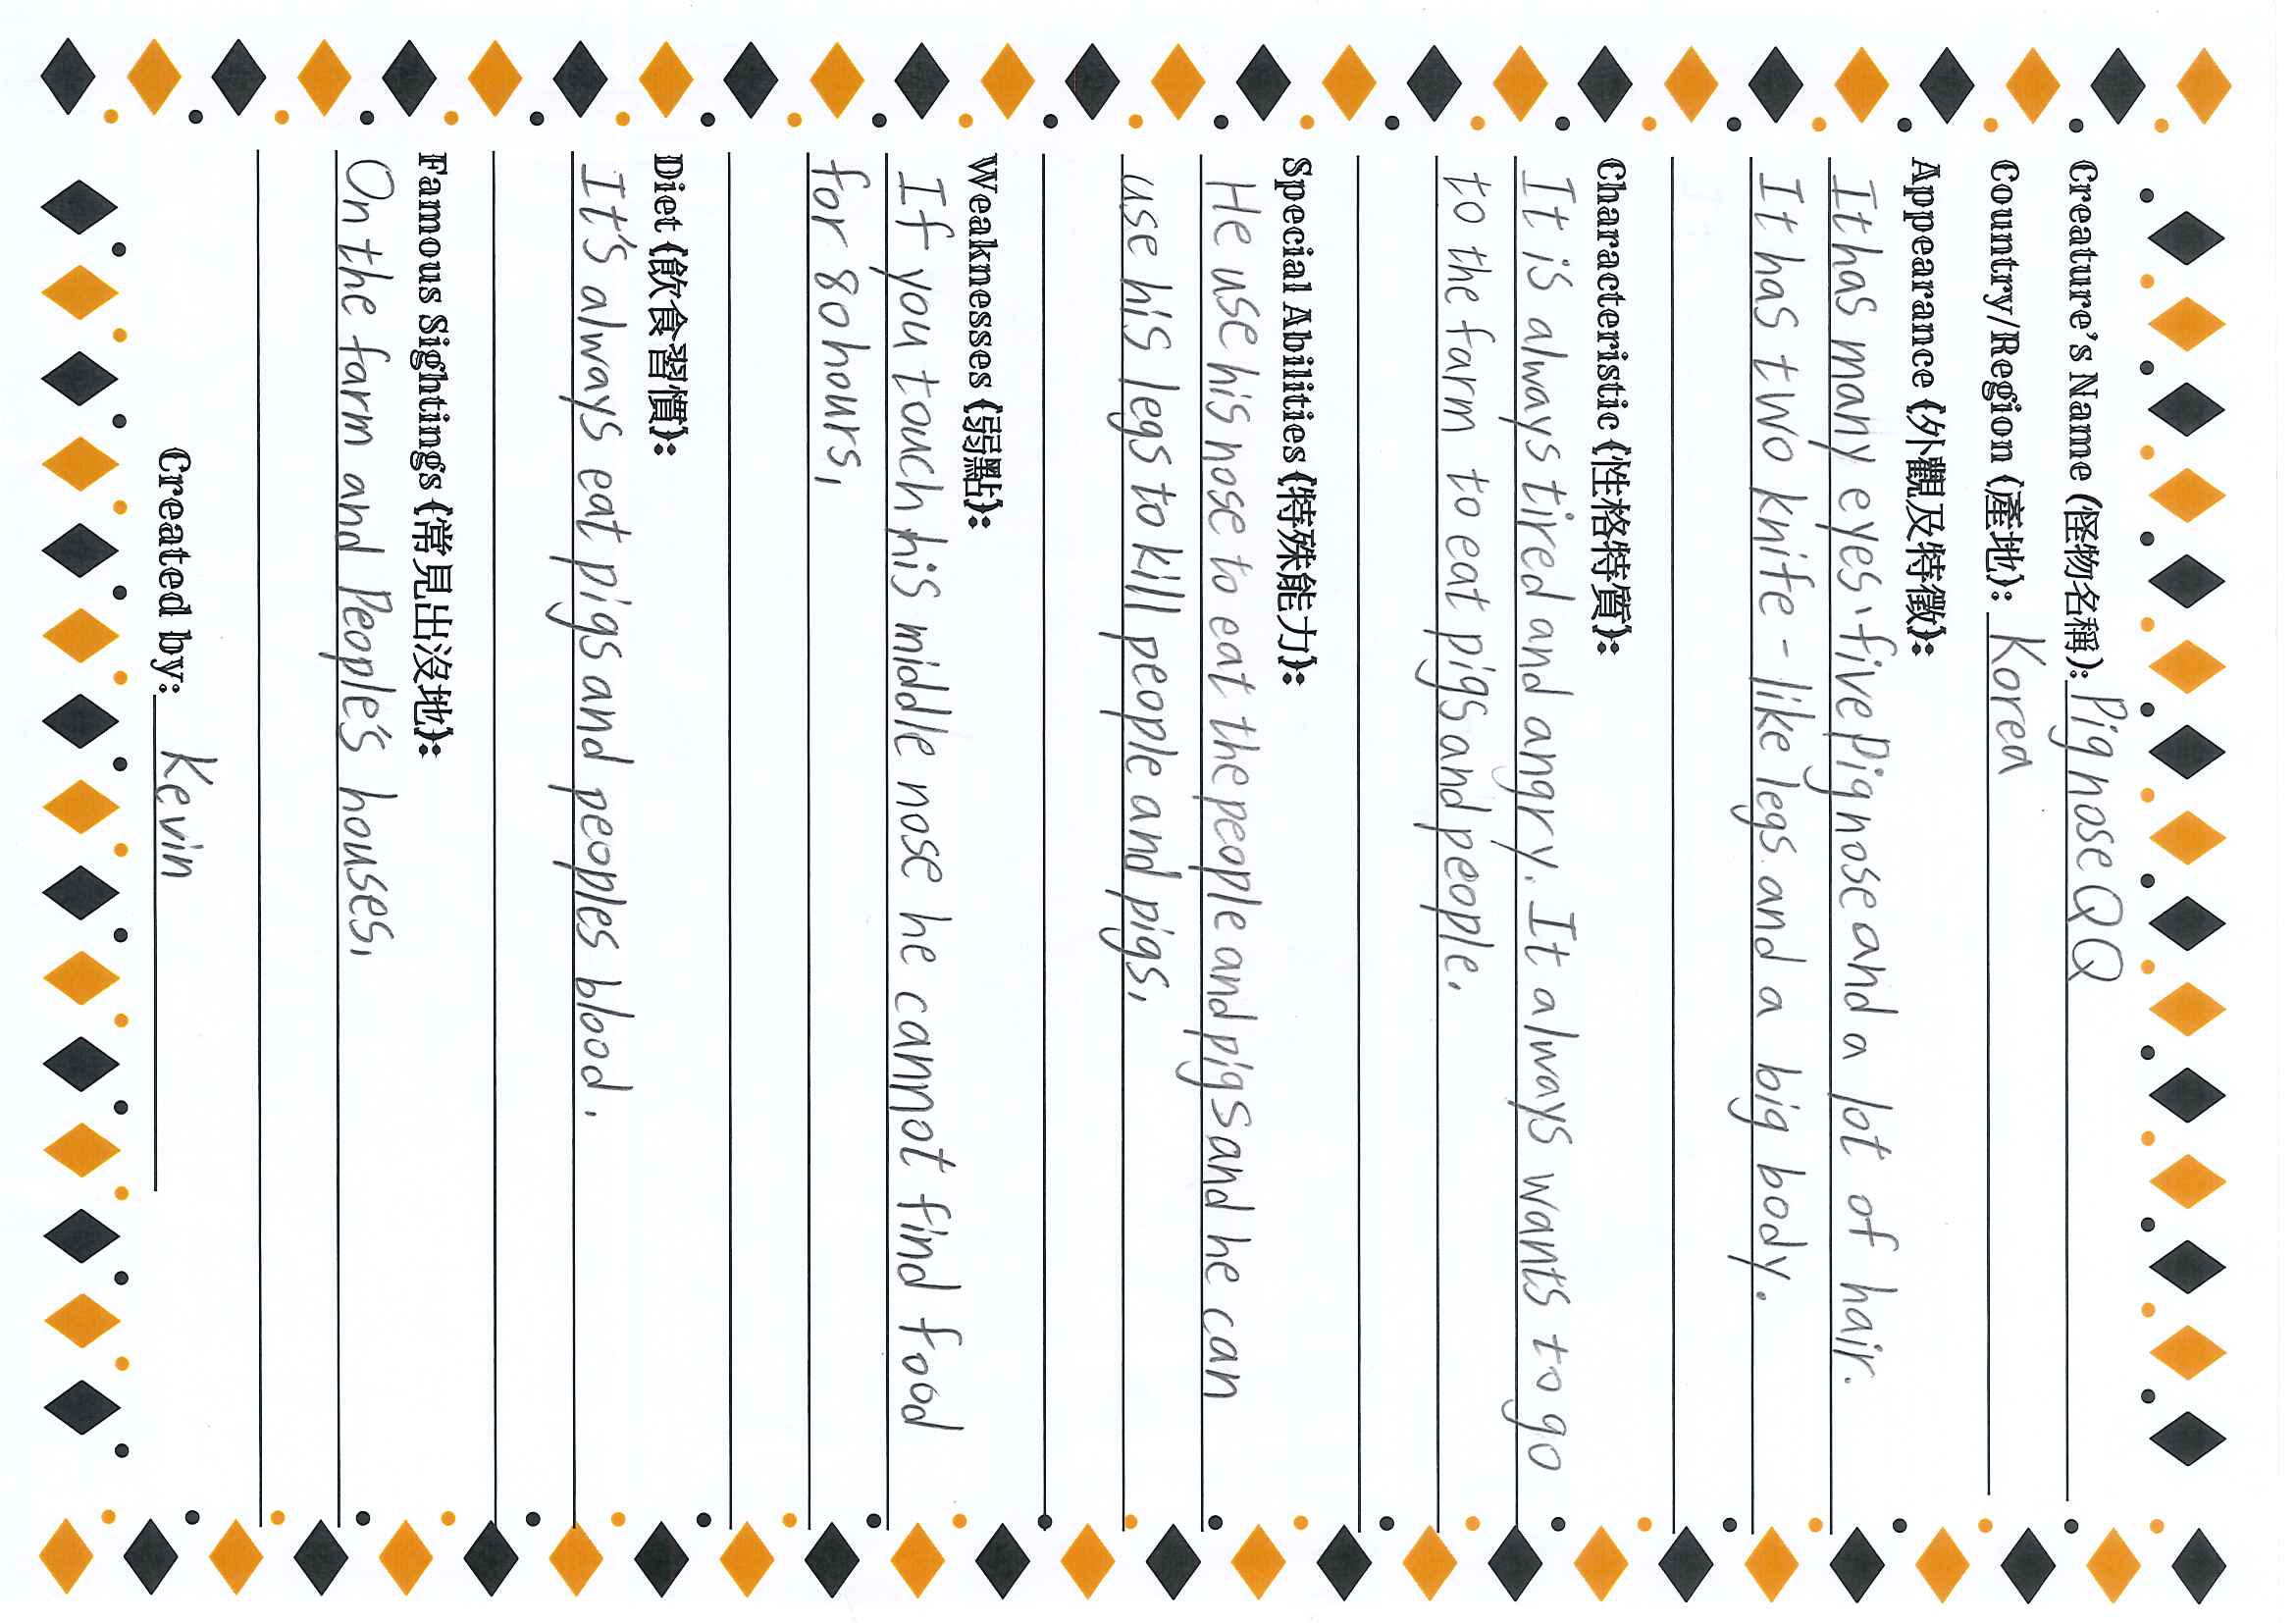 Creature's Name (怪物名稱): Pig nose QQ
Country/Region (產地): Korea
Appearance (外觀及特徵):
It has many eyes、five Pig nose and a lot of hair.
It has two knife - like legs and a big body.
Characteristic (性格特質):
It is always tired and angry. It always wants to go
to the farm to eat pigs and people.
Special Abilities (特殊能力):
He use his nose to eat the people and pigs and he can
use his legs to kill people and pigs,
Weaknesses (弱點):
If you touch his middle nose he cannot find food
for 80 hours,
Diet (飲食習慣):
It's always eat pigs and peoples blood,
Famous Sightings (常見出沒地):
On the farm and People's houses,
Created by: Kevin